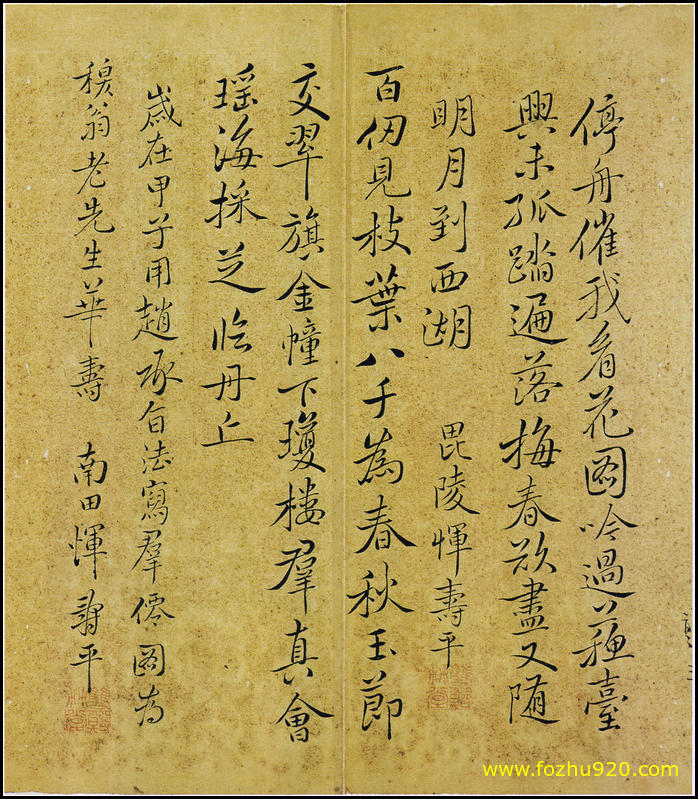 停舟催我看花圖吟過蘇臺
興未孤踏遍落梅春欲盡又随
明月到西湖 毘陵惲壽平
百仞見枝葉八千為春秋玉節
交翠旗金幢下瓊樓羣真會
瑶海採芝臨丹丘
嵗在甲子用趙承旨法寫羣僊圖為
穉翁老先生華壽 南田惲壽平
www.fozhu920.com